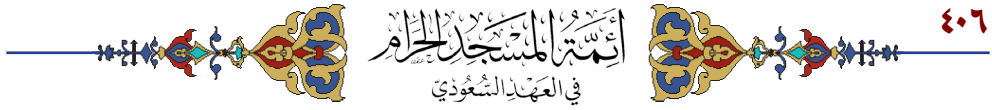 ٤٠٦
أَئِمَّةُ المَسْجِدِ الحَرَامِ
فِي العَهْدِ السُّعُودِيّ